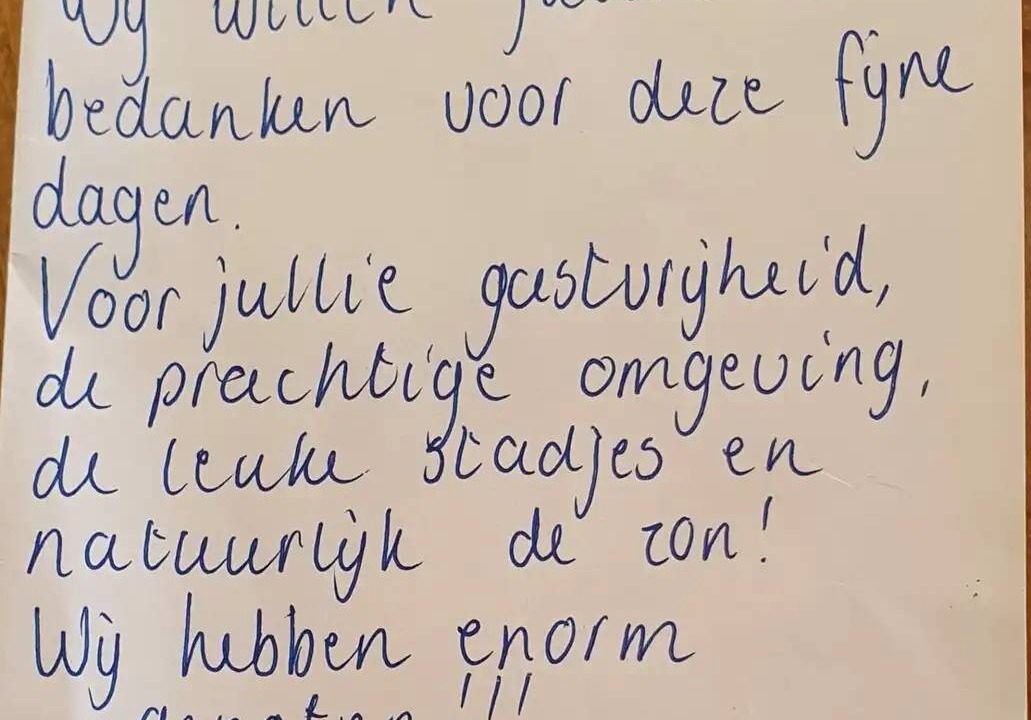 Wij willen
bedanken voor deze fijne
dagen.
Voor jullie gastvrijheid,
de prachtige omgeving,
de leuke stadjes en
natuurlijk de zon!
Wij hebben enorm
genoten!!!